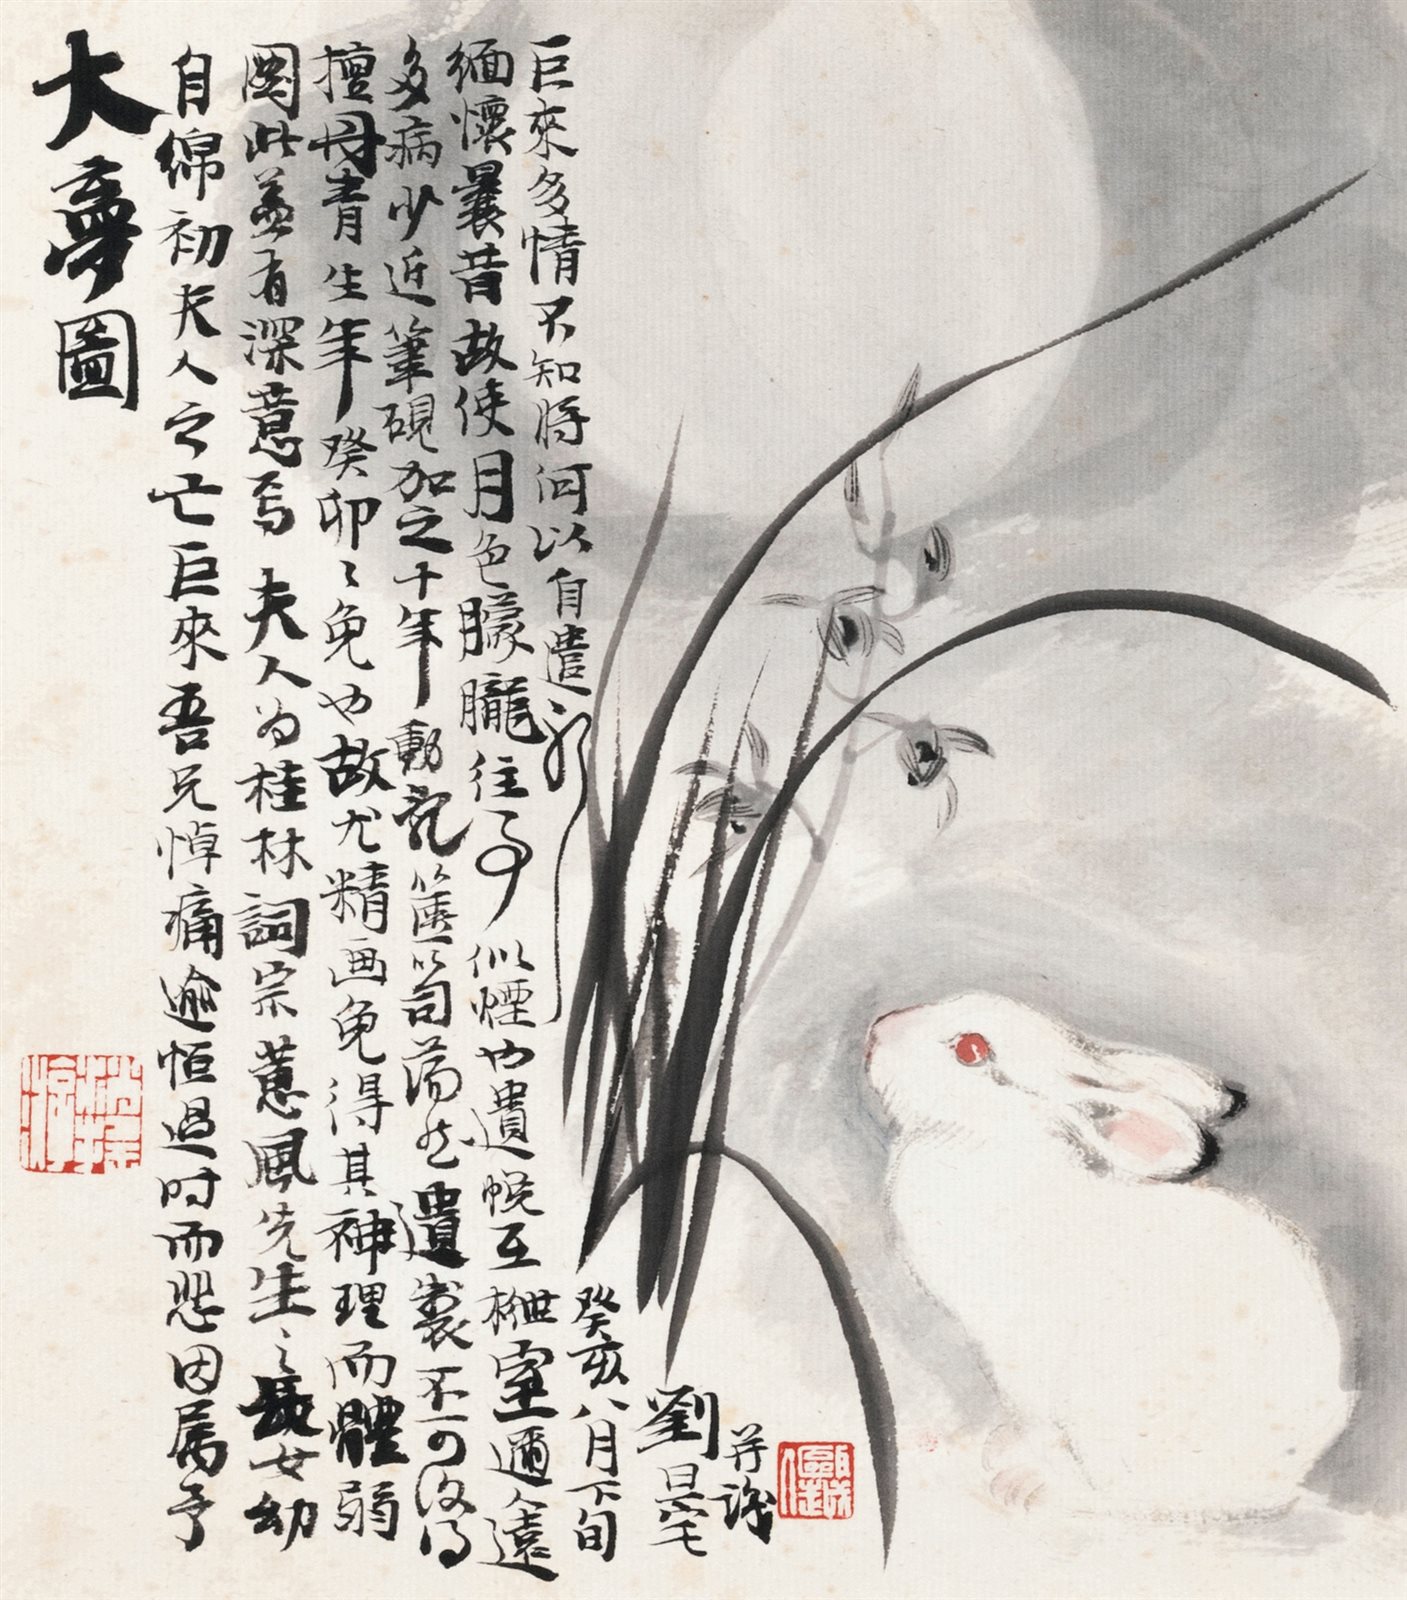 大夢圖
自綿初夫人之亡巨來吾兄悼痛逾恒過时而悲因属予
圖此盖有深意焉夫人为桂林詞宗蕙風先生之長女幼
擅丹青生年癸卯々兔也故尤精画兔得其神理而體弱
多病少近筆硯加之十年動亂篋笥蕩然遺製不可復得
緬懷曩昔故使月色朦朧往事似煙也遺帨在椸室邇人遠
巨來多情不知將何以自遣耶
癸亥八月下旬
劉旦宅
并識